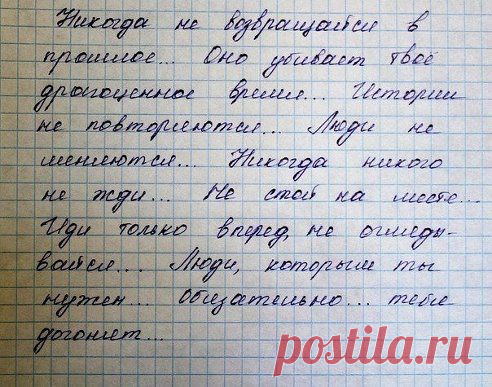 Никогда не возвращайся в
прошлое... Оно убивает твоё
драгоценное время... Истории
не повторяются... Люди не
меняются... Никогда никого
не жди... Не стой на месте...
Иди только вперед, не огляды-
вайся... Люди, которым ты
нужен... Обязательно... тебя
догонят...
postila.ru